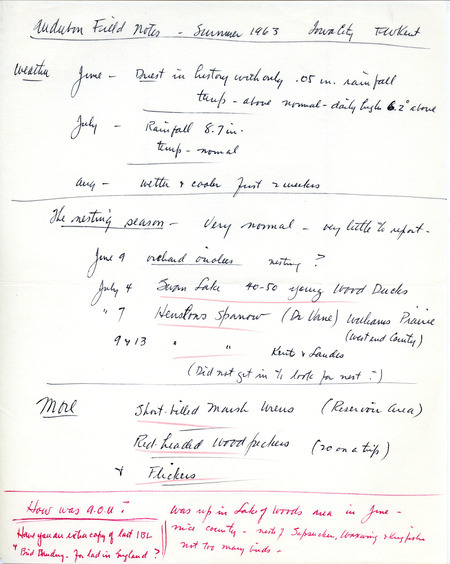 Audubon Field Notes - Summer 1963 Iowa City FWKent
Weather June - Driest in history with only .05 in. rainfall
temp - above normal - daily highs 6.2° above
July - Rainfall 8.7 in.
temp - normal
Aug - wetter & cooler first 2 weeks
The nesting season - Very normal - very little to report -
June 9 orchard orioles nesting ?
July 4 Swan Lake 40-50 young Wood Ducks
" 7 Henslows Sparrow (Dr Vane) Williams Prairie
(West end County)
9 & 13 " " Kent & Laudes
(Did not get in to look for nest -)
More Short-billed Marsh Wrens (Reservoir Area)
Red-headed Woodpeckers (20 on a trip)
& Flickers
How was A.O.U.?
Have you an extra copy of last IBL
& Bird Banding. For lad in England ?
Was up in Lake of Woods area in June -
nice country - nests of Sapsucker, Waxwing & Kingfisher
not too many birds -